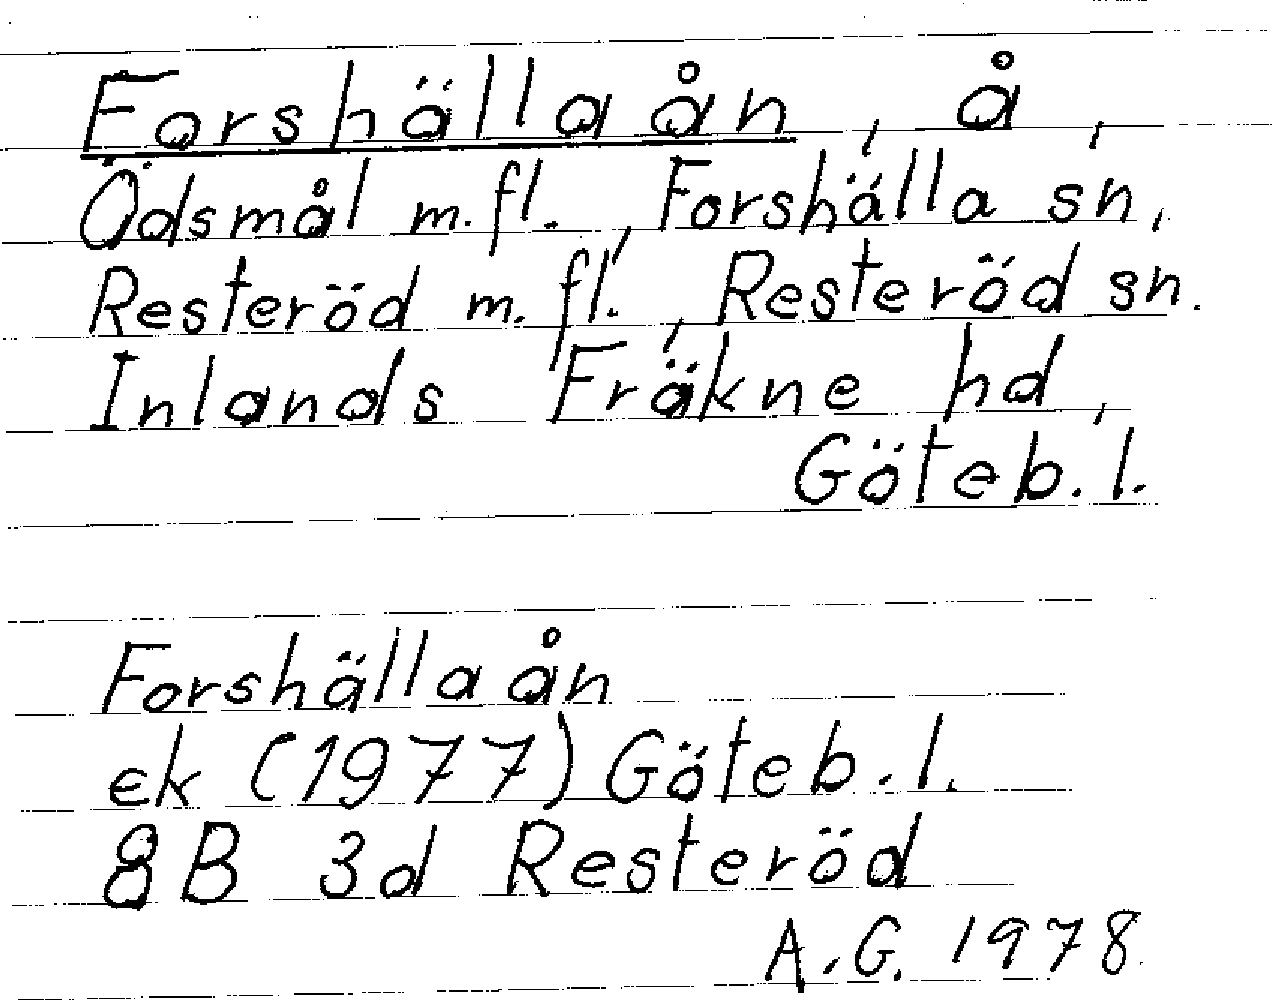 Forshällaån, å,
Ödsmål m.fl., Forshälla sn,
Resteröd m.fl., Resteröd sn.
Inlands Fräkne hd,
Göteb.l.
Forshällaån
ek (1977) Göteb.l.
8B 3d Resteröd
A.G. 1978